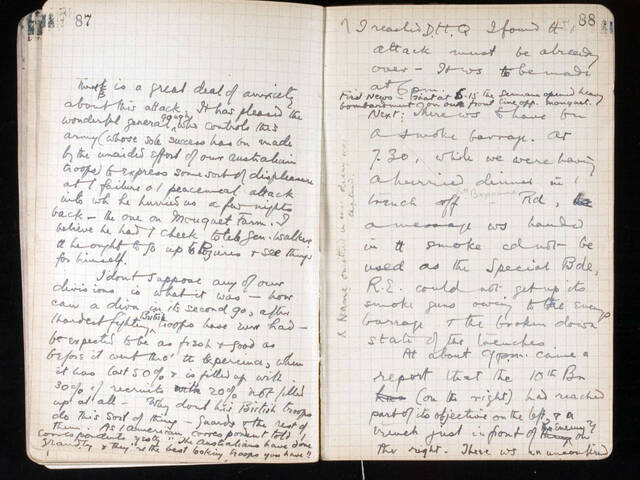 87
There is a great deal of anxiety
about this attack. It has pleased the
wonderful general, Gough, who controls this
army (whose sole success has bn made
by the unaided effort of our Australian
troops) to express some sort of displeasure
at t failure o t piecemeal attack
into wh he hurried us a few nights
back — the one on Mouquet Farm. I
believe he had t cheek to tell Gen. Walker
tt he ought to go up to Pozieres & see things
for himself.
I dont suppose any of our
divisions is what it was — how
can a divn in its second go, after
t hardest fighting British troops have ever had —
be expected to be as fresh & good as
before it went thro' tt experience, when
it has lost 50% & is filled up with
30% o recruits with 20% not filled
up at all — Why dont his British troops
do this sort of thing — Guards & the rest of
them. As t American correspondent told t
correspondents yesty "The Australians have done
grandly & they're the best looking troops you have".
88
I reached D.H.Q I found tt t
attack must be already
over — It ws to be made
at 6 pm.
First News — that at 5.15 the Germans opened heavy
bombardment of on our front line opp. Mouquet.
Next: There ws to have bn
a smoke barrage. At
7.30, while we were having
a hurried dinner in t
trench off — Rd,
a message ws handed
in tt smoke cd not be
used as the Special Bde,
R.E. could not get up its
smoke guns owing to the enemy
barrage & the broken down
state of the trenches
At about 9 pm. came a
report that the 10th Bn
(on the right) had reached
part of its objective on the left, & a
trench just in front of the enemy's on
the right. There ws an unconfirmed
* Name omitted in case diary ws